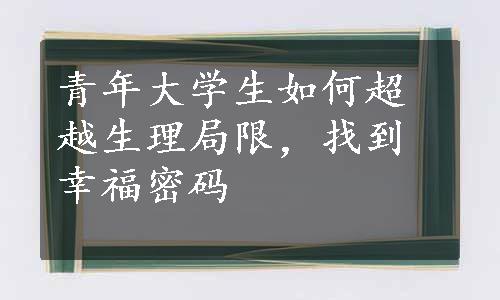 青年大学生如何超
越生理局限，找到
幸福密码